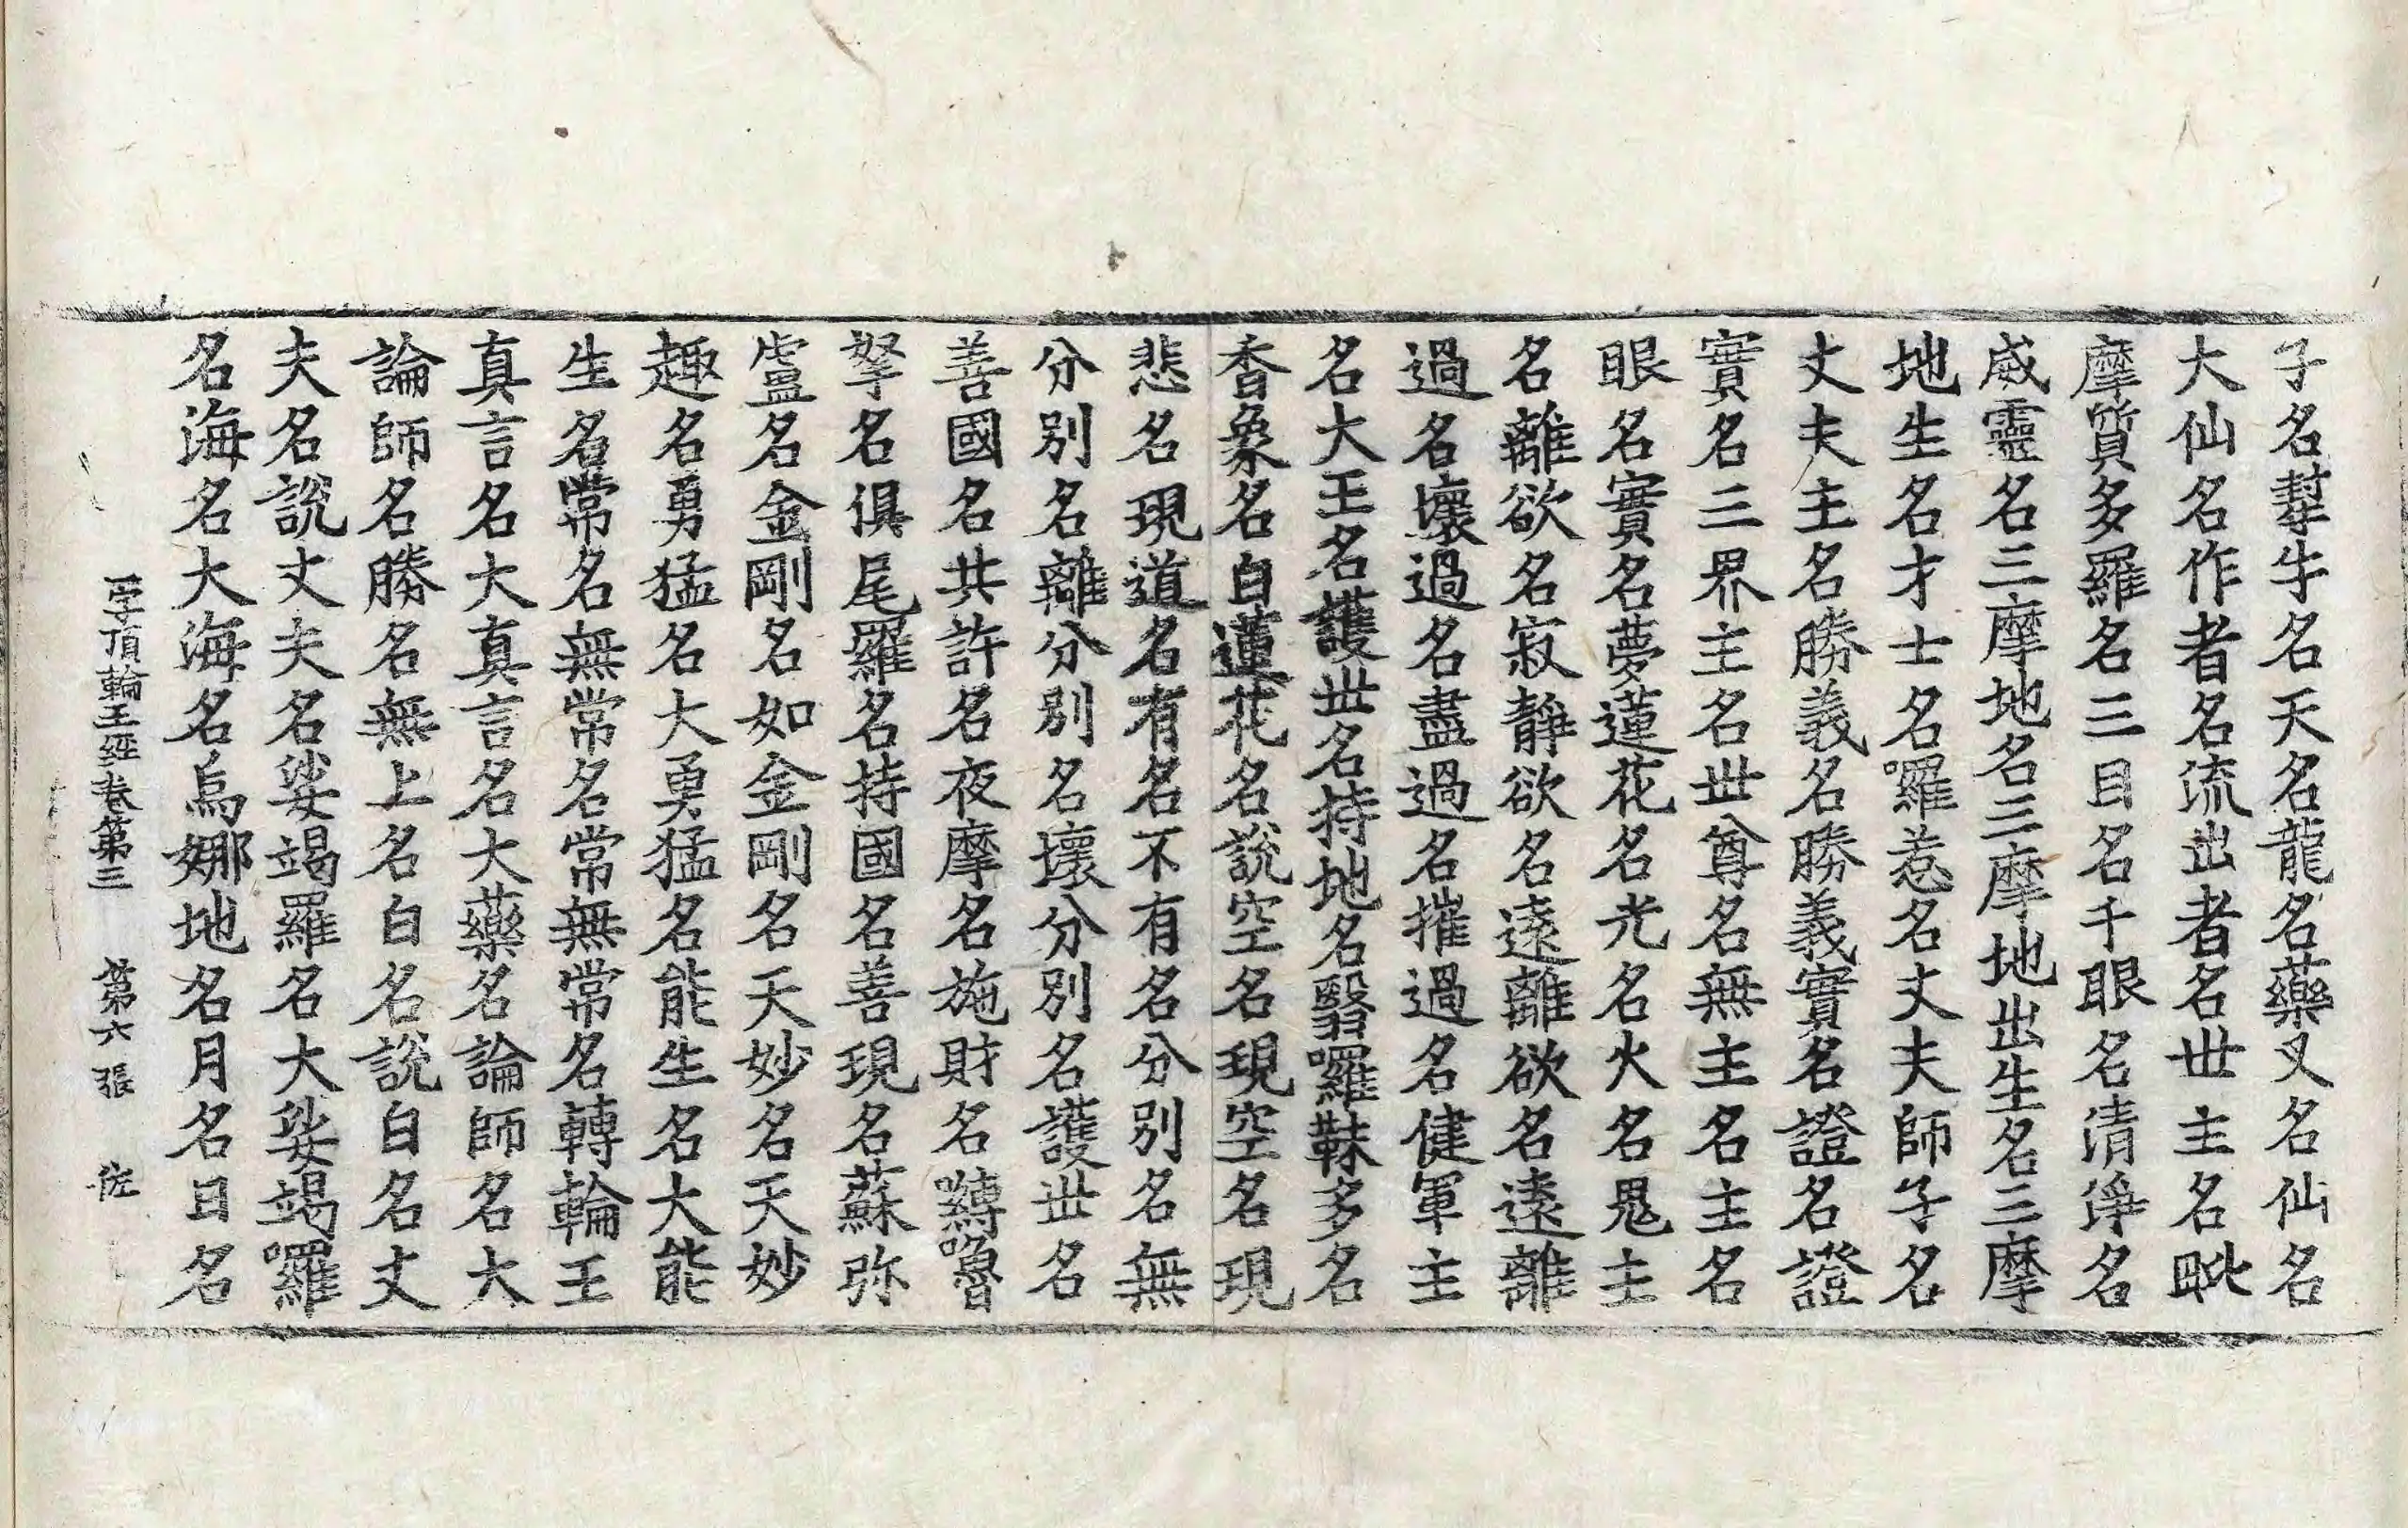 子名犎牛名天名龍名藥叉名仙名
大仙名作者名流出者名世主名毗
摩質多羅名三目名千眼名清淨名
威靈名三摩地名三摩地出生名三摩
地生名才士名羅惹名丈夫師子名
丈夫主名勝義名勝義實名證名證
實名三界主名世尊名無主名主名
眼名實名夢蓮花名光名火名鬼主
名離欲名寂靜欲名遠離欲名遠離
過名壞過名盡過名摧過名健軍主
名大王名護世名持地名翳囉靺多名
香象名白蓮花名說空名現空名現
悲名現道名有名不有名分別名無
分別名離分別名壞分別名護世名
善國名共許名夜摩名施財名嚩嚕
拏名俱尾羅名持國名善現名蘇弥
盧名金剛名如金剛名天妙名天妙
趣名勇猛名大勇猛名能生名大能
生名常名無常名常無常名轉輪王
真言名大真言名大藥名論師名大
論師名勝名無上名白名說白名丈
夫名說丈夫名娑竭羅名大娑竭囉
名海名大海名烏娜地名月名日名
一字頂輪王經卷第三 第六張 佐